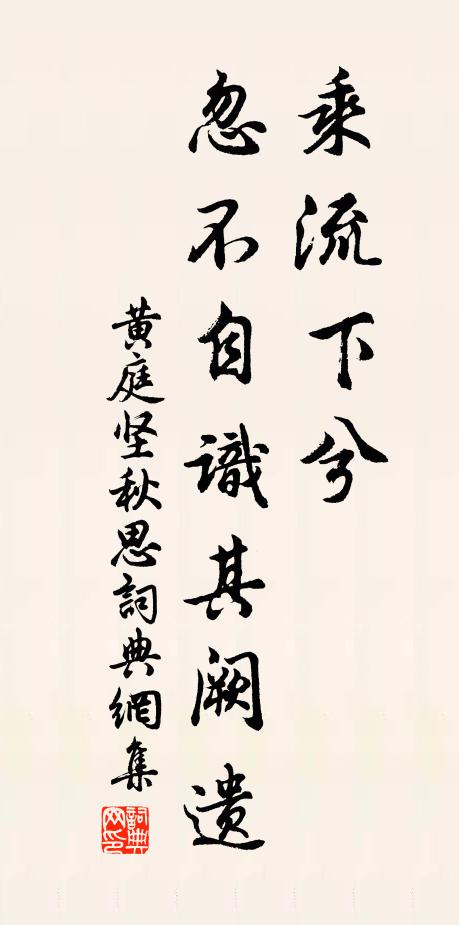 乘流下兮
忽不自識其阙遗
黄庭坚秋思詞典網集
詞典网印